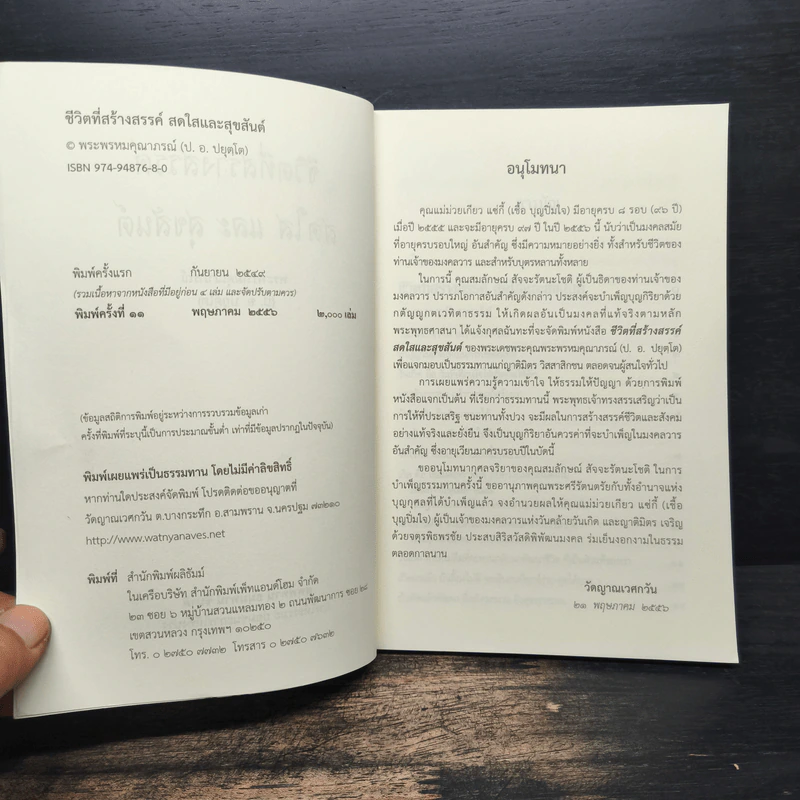 ชีวิตที่สร้างสรรค์ สดใสและสุขสันต์
© พระพรหมคุณาภรณ์ (ป. อ. ปยุตฺโต)
ISBN 974-94876-8-0
พิมพ์ครั้งแรก กันยายน ๒๕๔๙
(รวมเนื้อหาจากหนังสือที่มีอยู่ก่อน ๔ เล่ม และจัดปรับตามควร)
พิมพ์ครั้งที่ ๑๑ พฤษภาคม ๒๕๕๖ ๒,๐๐๐ เล่ม
(ข้อมูลสถิติการพิมพ์อยู่ระหว่างการรวบรวมข้อมูลเก่า
ครั้งที่พิมพ์ที่ระบุนี้เป็นการประมาณขั้นต่ำ เท่าที่มีข้อมูลปรากฏในปัจจุบัน)
พิมพ์เผยแพร่เป็นธรรมทาน โดยไม่มีค่าลิขสิทธิ์
หากท่านใดประสงค์จัดพิมพ์ โปรดติดต่อขออนุญาตที่
วัดญาณเวศกวัน ต.บางกระทึก อ.สามพราน จ.นครปฐม ๗๓๒๑๐
http://www.watnyanaves.net
พิมพ์ที่ สำนักพิมพ์ผลิธัมม์
ในเครือบริษัท สำนักพิมพ์เพ็ทแอนด์โฮม จำกัด
๒๓ ซอย ๖ หมู่บ้านสวนแหลมทอง ๒ ถนนพัฒนาการ ซอย ๒๘
เขตสวนหลวง กรุงเทพฯ ๑๐๒๕๐
โทร. ๐ ๒๗๕๐ ๗๗๓๒ โทรสาร ๐ ๒๗๕๐ ๗๖๓๒
อนุโมทนา
คุณแม่ม่วยเกียว แซ่กี้ (เชื้อ บุญปิ่มใจ) มีอายุครบ ๘ รอบ (๙๖ ปี)
เมื่อปี ๒๕๕๕ และจะมีอายุครบ ๙๗ ปี ในปี ๒๕๕๖ นี้ นับว่าเป็นมงคลสมัย
ที่อายุครบรอบใหญ่ อันสำคัญ ซึ่งมีความหมายอย่างยิ่ง ทั้งสำหรับชีวิตของ
ท่านเจ้าของมงคลวาร และสำหรับบุตรหลานทั้งหลาย
ในการนี้ คุณสมลักษณ์ สัจจะรัตนะโชติ ผู้เป็นธิดาของท่านเจ้าของ
มงคลวาร ปรารภโอกาสอันสำคัญดังกล่าว ประสงค์จะบำเพ็ญบุญกิริยาด้วย
กตัญญูกตเวทิตาธรรม ให้เกิดผลอันเป็นมงคลที่แท้จริงตามหลัก
พระพุทธศาสนา ได้แจ้งกุศลฉันทะที่จะจัดพิมพ์หนังสือ ชีวิตที่สร้างสรรค์
สดใสและสุขสันต์ ของพระเดชพระคุณพระพรหมคุณาภรณ์ (ป. อ. ปยุตฺโต)
เพื่อแจกมอบเป็นธรรมทานแก่ญาติมิตร วิสสาสิกชน ตลอดจนผู้สนใจทั่วไป
การเผยแพร่ความรู้ความเข้าใจ ให้ธรรมให้ปัญญา ด้วยการพิมพ์
หนังสือแจกเป็นต้น ที่เรียกว่าธรรมทานนี้ พระพุทธเจ้าทรงสรรเสริญว่าเป็น
การให้ที่ประเสริฐ ชนะทานทั้งปวง จะมีผลในการสร้างสรรค์ชีวิตและสังคม
อย่างแท้จริงและยั่งยืน จึงเป็นบุญกิริยาอันควรค่าที่จะบำเพ็ญในมงคลวาร
อันสำคัญ ซึ่งอายุเวียนมาครบรอบปีในบัดนี้
ขออนุโมทนากุศลจริยาของคุณสมลักษณ์ สัจจะรัตนะโชติ ในการ
บำเพ็ญธรรมทานครั้งนี้ ขออานุภาพคุณพระศรีรัตนตรัยกับทั้งอำนาจแห่ง
บุญกุศลที่ได้บำเพ็ญแล้ว จงอำนวยผลให้คุณแม่ม่วยเกียว แซ่กี้ (เชื้อ
บุญปิ่มใจ) ผู้เป็นเจ้าของมงคลวารแห่งวันคล้ายวันเกิด และญาติมิตร เจริญ
ด้วยจตุรพิธพรชัย ประสบสิริสวัสดิพิพัฒนมงคล ร่มเย็นงอกงามในธรรม
ตลอดกาลนาน
วัดญาณเวศกวัน
๒๑ พฤษภาคม ๒๕๕๖